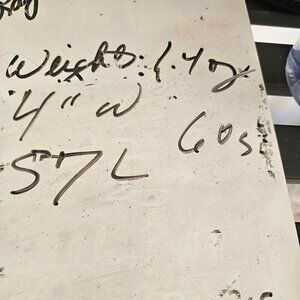 Weight: 1.4oz
4" W
60s
5" L